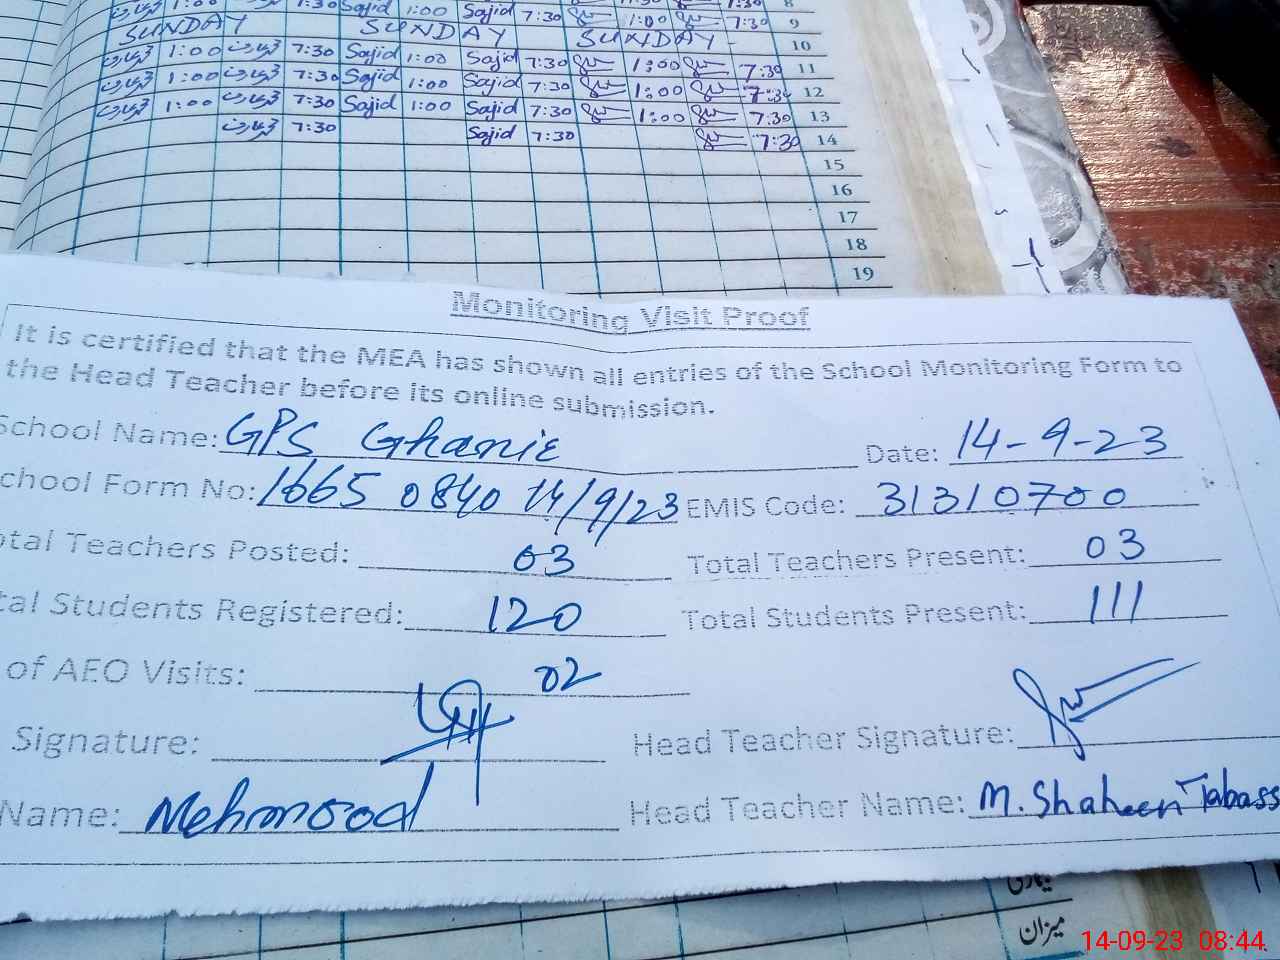 1:00 7:30 Sajid 1:00 Sajid 7:30 1:00 7:30 8
SUNDAY SUNDAY SUNDAY 9
1:00 7:30 Sajid 1:00 Sajid 7:30 1:00 7:30 10
1:00 7:30 Sajid 1:00 Sajid 7:30 1:00 7:30 11
1:00 7:30 Sajid 1:00 Sajid 7:30 1:00 7:30 12
7:30 Sajid 7:30 7:30 13
14
15
16
17
18
19
Monitoring Visit Proof
It is certified that the MEA has shown all entries of the School Monitoring Form to
the Head Teacher before its online submission.
School Name: GPS Ghanie Date: 14-9-23
chool Form No: 1665 0840 14/9/23 EMIS Code: 31310700
otal Teachers Posted: 03 Total Teachers Present: 03
tal Students Registered: 120 Total Students Present: 111
of AEO Visits: 02
Signature: Head Teacher Signature:
Name: Mehmood Head Teacher Name: M. Shaheen Tabass
میزان
14-09-23 08:44